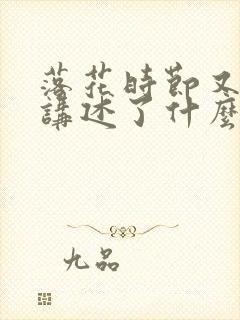 落花時節又
講述了什麼
九品